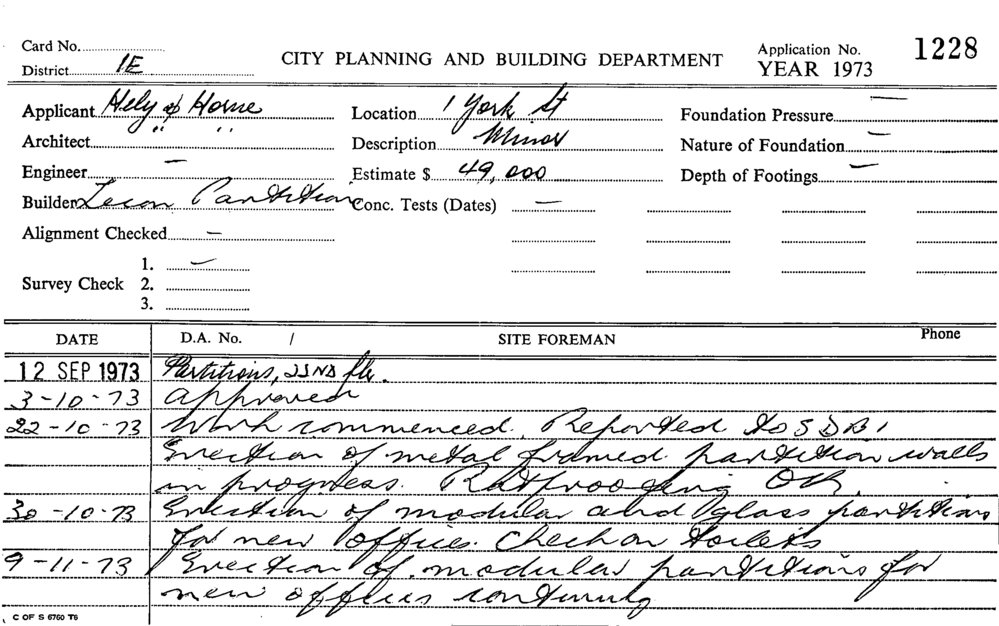 Card No.
District 1E
CITY PLANNING AND BUILDING DEPARTMENT
Application No. 1228
YEAR 1973
Applicant Hely & Horne
Location 1 York St
Foundation Pressure —
Architect " "
Description Minor
Nature of Foundation —
Engineer —
Estimate $ 49,000
Depth of Footings —
Builder Partitions
Conc. Tests (Dates) —
Alignment Checked —
Survey Check
1. —
2.
3.
DATE D.A. No. / SITE FOREMAN Phone
12 SEP 1973 Partitions, 22ND flr.
3-10-73 Approved
22-10-73 Work commenced. Reported to S D B I
Erection of metal framed partition walls
in progress. Ratproofing OK.
30-10-73 Erection of modular and glass partitions
for new offices. Check on toilets
9-11-73 Erection of modular partitions for
new offices continuing
C OF S 6760 T6